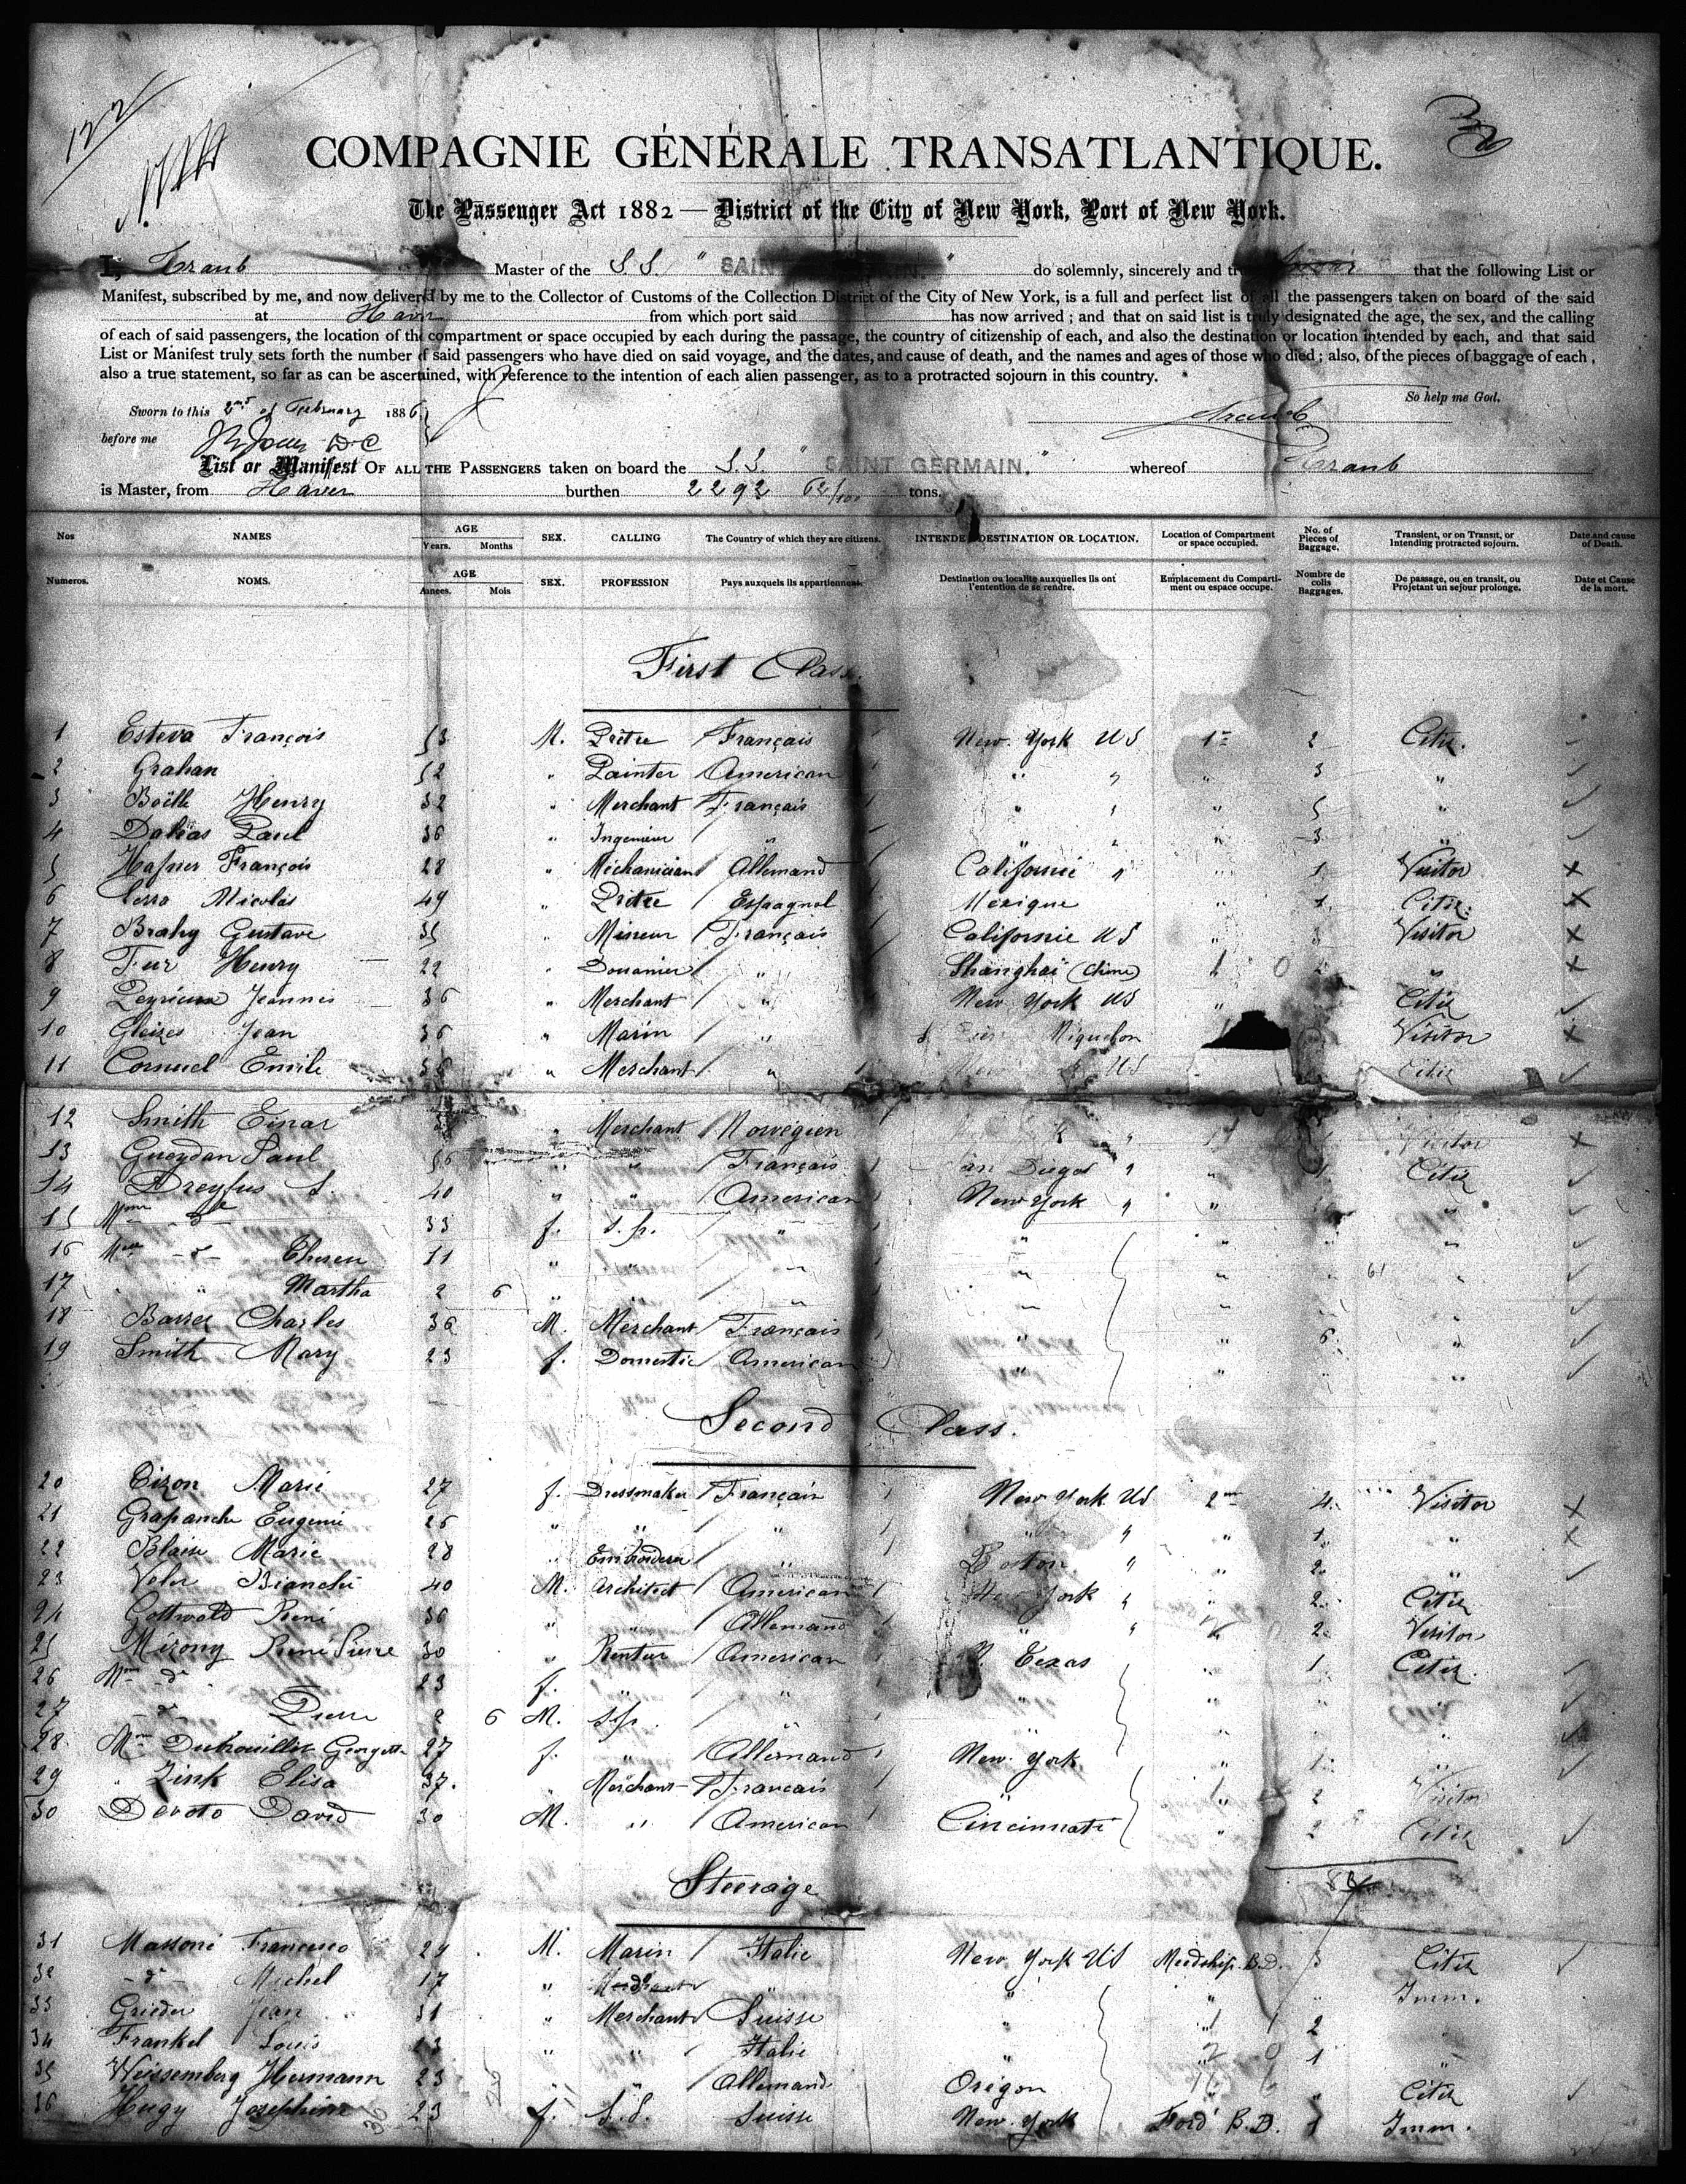 122
COMPAGNIE GÉNÉRALE TRANSATLANTIQUE.
The Passenger Act 1882 — District of the City of New York, Port of New York.
I, Traub Master of the S.S. " SAINT GERMAIN. " do solemnly, sincerely and truly swear that the following List or
Manifest, subscribed by me, and now delivered by me to the Collector of Customs of the Collection District of the City of New York, is a full and perfect list of all the passengers taken on board of the said
at Havre from which port said has now arrived ; and that on said list is truly designated the age, the sex, and the calling
of each of said passengers, the location of the compartment or space occupied by each during the passage, the country of citizenship of each, and also the destination or location intended by each, and that said
List or Manifest truly sets forth the number of said passengers who have died on said voyage, and the dates, and cause of death, and the names and ages of those who died ; also, of the pieces of baggage of each,
also a true statement, so far as can be ascertained, with reference to the intention of each alien passenger, as to a protracted sojourn in this country.
So help me God.
Sworn to this 2nd of February 1886
Traub
before me
List or Manifest OF ALL THE PASSENGERS taken on board the S.S. " SAINT GERMAIN. " whereof Traub
is Master, from Havre burthen 2292 62/100 tons.
Nos NAMES AGE Years. Months SEX. CALLING The Country of which they are citizens. INTENDED DESTINATION OR LOCATION. Location of Compartment or space occupied. No. of Pieces of Baggage. Transient, or on Transit, or Intending protracted sojourn. Date and cause of Death.
Numeros. NOMS. AGE Années. Mois SEX. PROFESSION Pays auxquels ils appartiennent. Destination ou localité auxquelles ils ont l'entention de se rendre. Emplacement du Compartiment ou espace occupe. Nombre de colis Baggages. De passage, ou en transit, ou Projetant un sejour prolonge. Date et Cause de la mort.
First Class.
1 Esteva François 53 M. Prêtre Français New York US 1re 2 Citiz.
2 Grahan 52 " Painter American " " " 3 "
3 Boëlle Henry 32 " Merchant Français " " " 5 "
4 Dalias Paul 36 " Ingenieur " " " " 3 "
5 Hafner François 28 " Mechanician Allemand Californie " " 1 Visitor
6 Serra Nicolas 49 " Prêtre Espagnol Mexique " 1 Citiz.
7 Brahy Gustave 35 " Mineur Français Californie US " 3 Visitor
8 Fur Henry 22 " Douanier " Shanghaï (Chine) 2 "
9 Peyrieux Jeannis 36 " Merchant " New York US " Citiz
10 Gleizes Jean 36 " Marin " Miquelon Visitor
11 Cornuel Emile " Merchant " US Citiz
12 Smith Einar " Merchant Norvegien " Visitor
13 Gueydan Paul 56 " " Français San Diego " " 1 Citiz
14 Dreyfus S. 40 " " American New York " " "
15 Mme do 33 f. s.p. " " " " "
16 Melle do Therese 11 " " " " " " "
17 " Martha 2 6 " " " " " "
18 Barrez Charles 36 M. Merchant Français " " 6 "
19 Smith Mary 23 f. Domestic American " " " "
Second Class.
20 Cizon Marie 27 f. Dressmaker Français New York US 2me 4 Visitor
21 Grapanche Eugenie 26 " " " " " " 1 "
22 Blaise Marie 28 " Embroderer " Boston " " 2 "
23 Veler Bianchi 40 M. Architect American New York " 2 Citiz
24 Gottwald René 36 " " Allemand " " 2 Visitor
25 Mézony René Pierre 30 " Rentier American Texas " 1 Citiz.
26 Mme do 23 f. " " " " " "
27 do Pierre 2 6 M. s.p. " " " " "
28 Mme Dubouillit Georgette 27 f. " Allemand New York 1 "
29 " Zink Elisa 37 " Merchant Français " " 2 Visitor
30 Devoto David 30 M. " American Cincinnati " 2 Citiz
Steerage
31 Massoni Francesco 24 M. Marin Italie New York US Meedship. B.D. 3 Citiz
32 do Michel 17 " " " " " Imm.
33 Grieder Jean 31 " Merchant Suisse " " 2
34 Frankel Louis 23 " " Italie " " 1 "
35 Weissemberg Hermann 23 " " Allemand Orégon " " Citiz
36 Hugy Josephine 23 f. S.S. Suisse New York Ford B.D. 1 Imm.